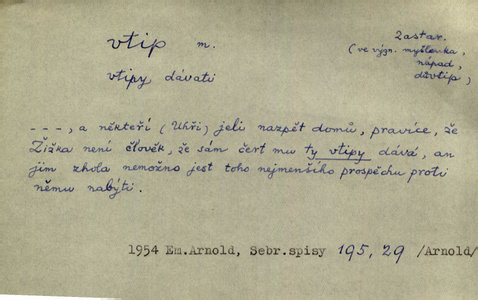 vtip m.
zastar.
(ve význ. myšlenka,
nápad,
důvtip)
vtipy dávati
---, a někteří (Uhři) jeli nazpět domů, pravíce, že
Žižka není člověk, že sám čert mu ty vtipy dává, an
jim zhola nemožno jest toho nejmenšího prospěchu proti
němu nabýti.
1954 Em.Arnold, Sebr.spisy 195, 29 /Arnold/